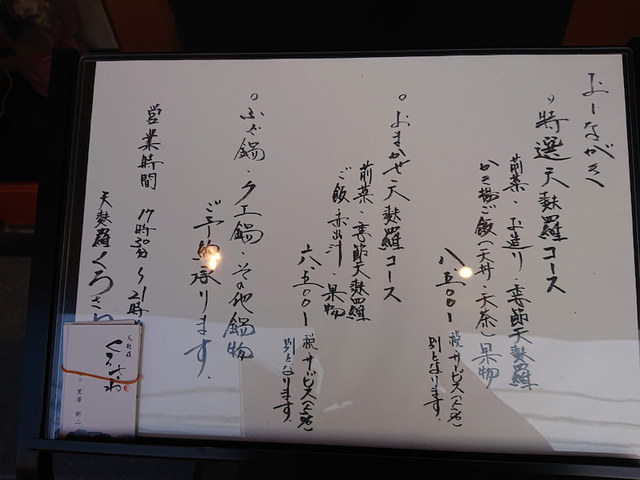 おしながき
。特選天麩羅コース
前菜・お造り・季節天麩羅
かき揚ご飯(天丼・天茶)果物
八、五〇〇
税サービス(10%)
別となります
。おまかせ天麩羅コース
前菜・季節天麩羅
ご飯 赤出汁・果物
六、五〇〇
税サービス(10%)
別となります
。ふぐ鍋・クエ鍋・その他鍋物
ご予約承ります
営業時間 17時30分〜21時
天麩羅くろさわ
天麩羅
くろさわ
黒澤 新二